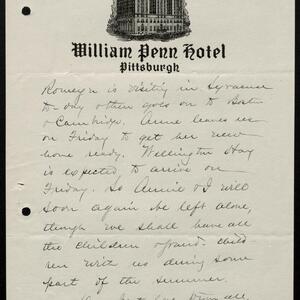 William Penn Hotel
Pittsburgh
Romeyn is visiting in Syracuse
to-day & then goes on to Boston
& Cambridge. Anne leaves us
on Friday to get her new
home ready. Wellington Hay
is expected to arrive on
Friday. So Annie & I will
soon again be left alone,
though we shall have all
the children & grand-child
ren with us during some
part of the summer.